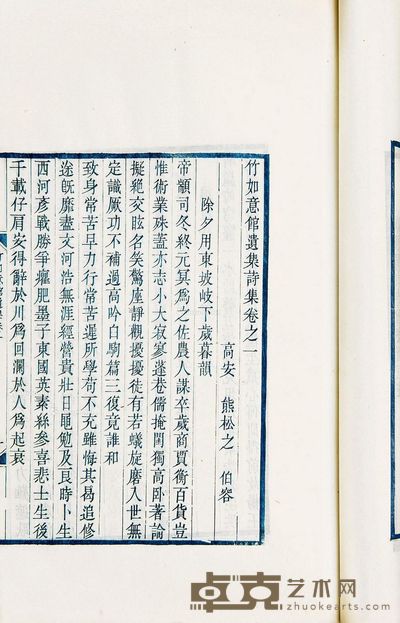 竹如意館遺集詩集卷之一
高安 熊松之 伯容
除夕用東坡岐下歲暮韻
帝顓司冬終元冥為之佐農人謀卒歲商賈衡百貨豈
惟術業殊蓋亦志小大寂寥蓬巷儒掩關獨高卧著論
擬絶交眩名笑驚座靜觀擾擾徒有若蟻旋磨入世無
定識厭功不補過高吟白駒篇三復竟誰和
致身常苦早力行常苦遲所學苟不充雖悔其曷追修
塗旣靡盡文河浩無涯經營貴壯日黽勉及良時卜生
西河彥戰勝爭癯肥墨子東國英素絲參喜悲士生後
千載仔肩安得辭於川為回瀾於人為起衰
卓克艺术网
www.zhuokearts.com